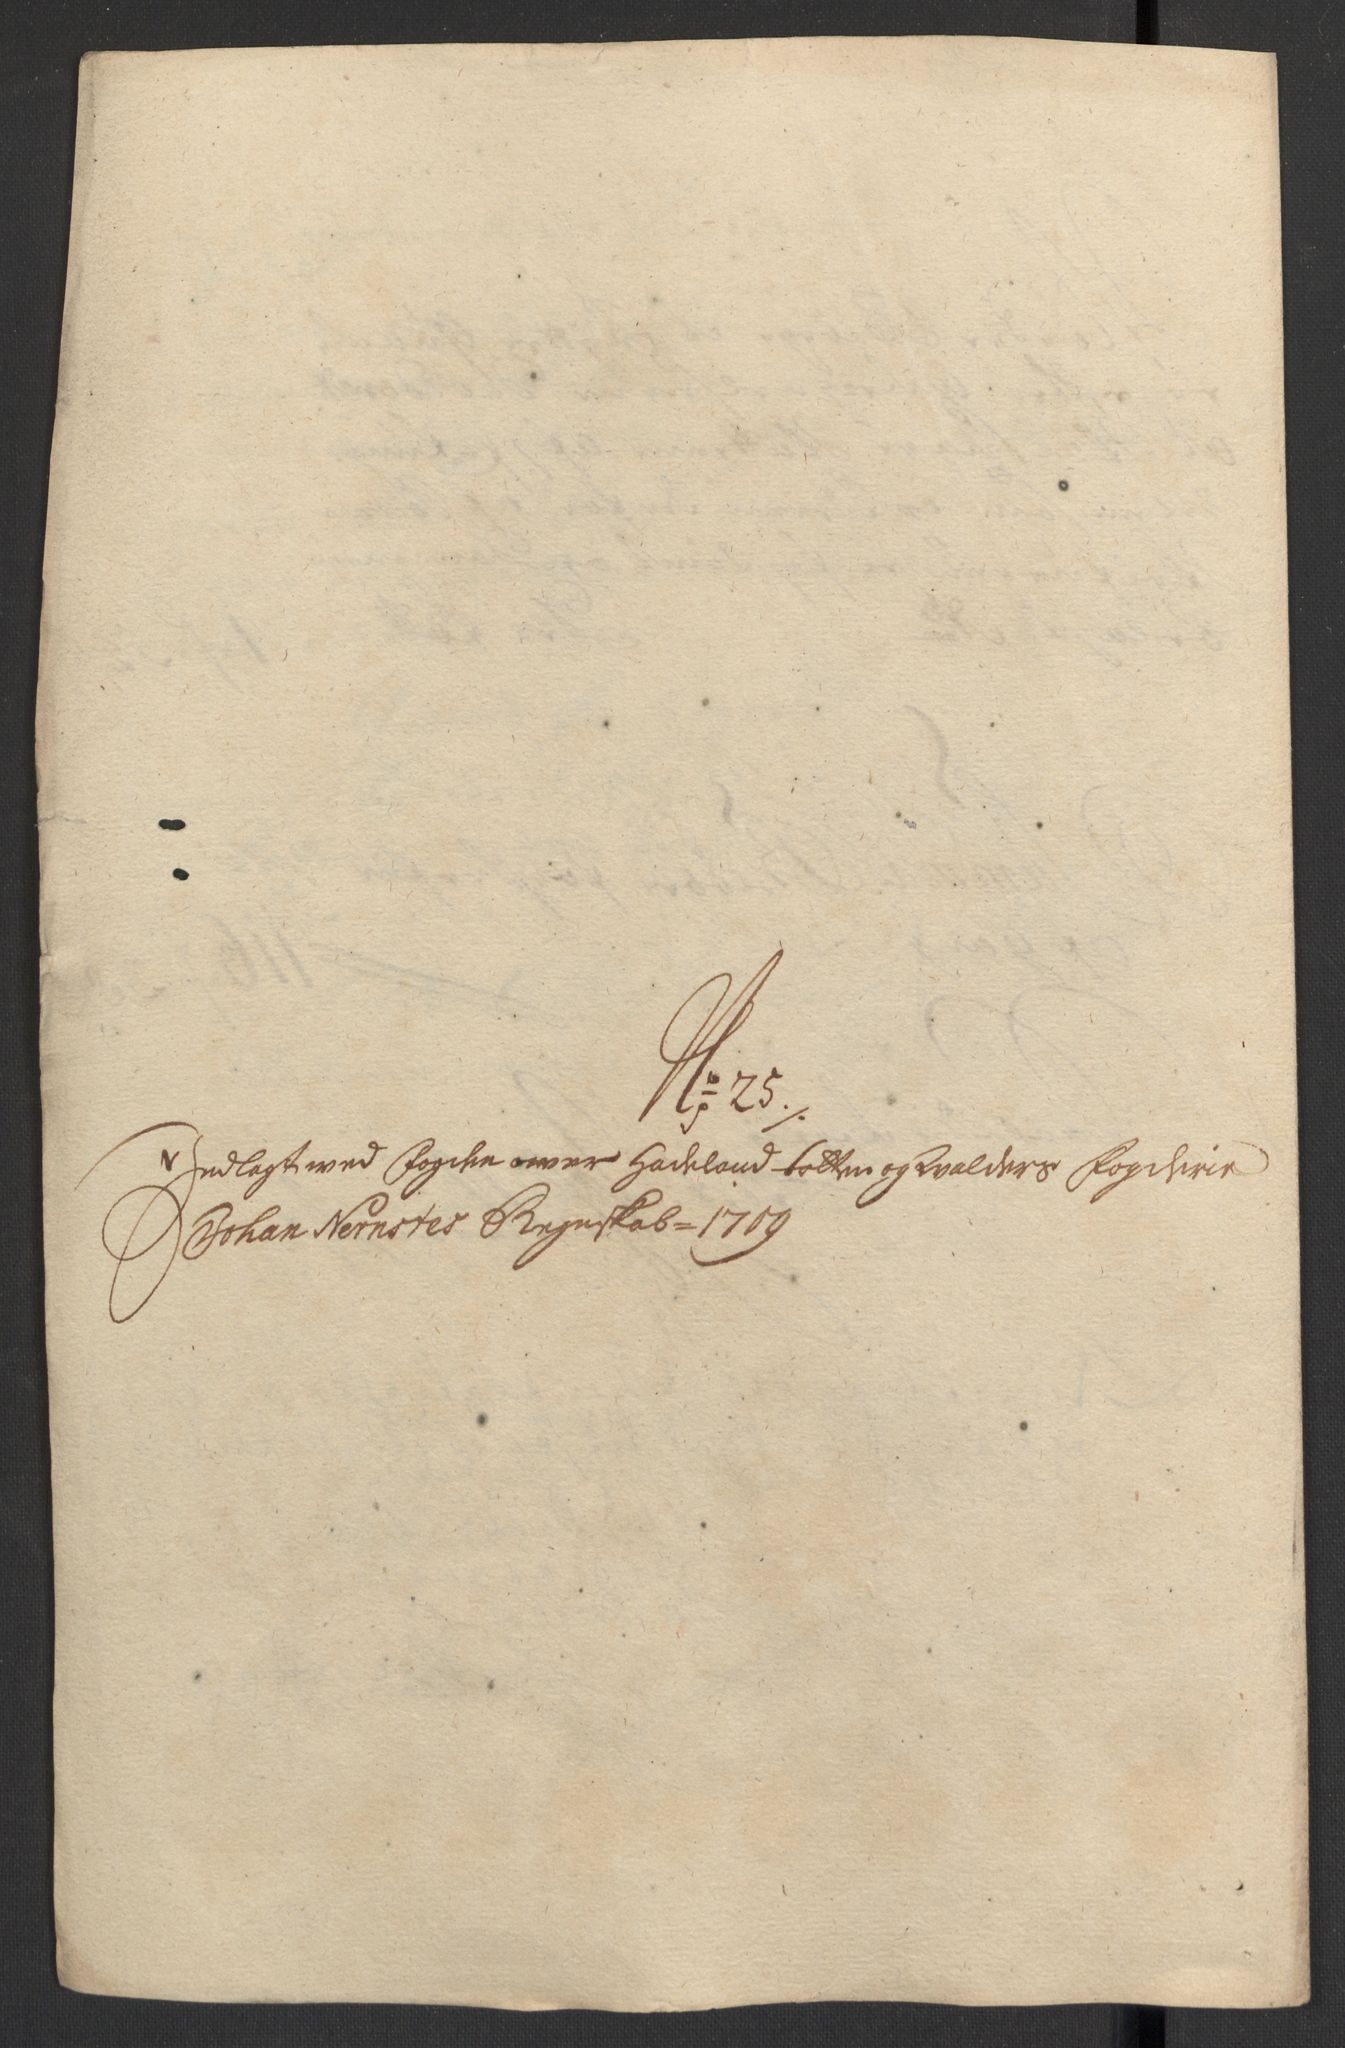 No 25 ./.
Indlagt wed Fogden ower Hadeland Totten og Walders Fogderie
Johan Nernstes Regnskab = 1709